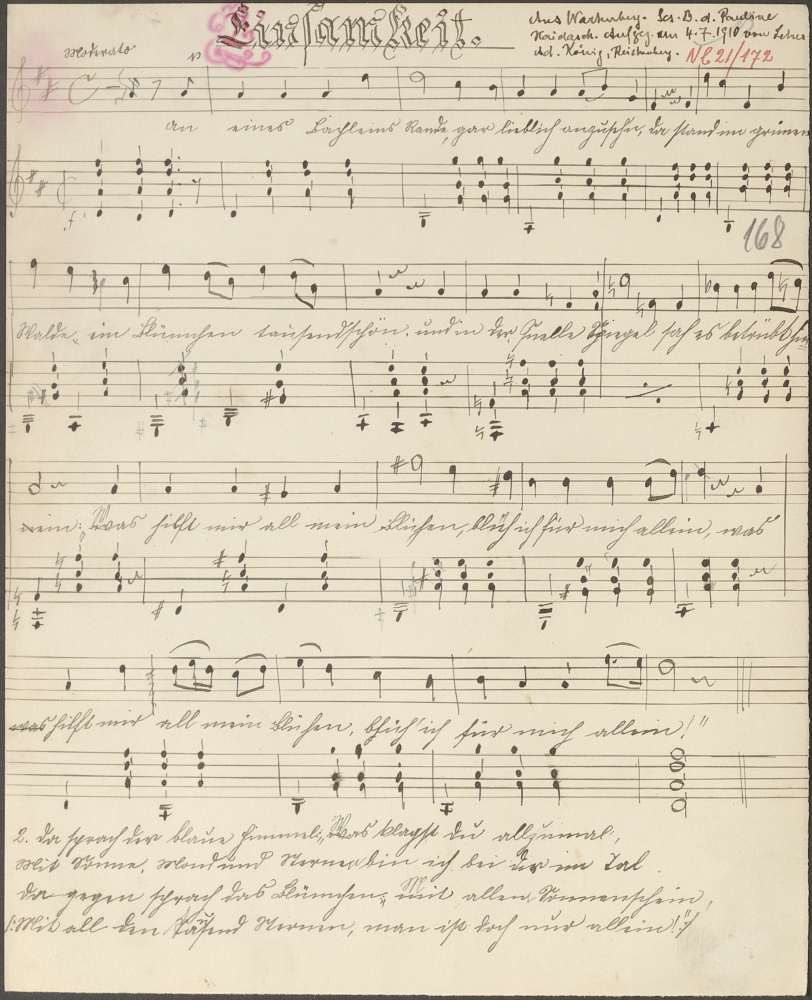 Einsamkeit.
Aus Wartenberg. Ges. B. d. Pauline
Aufgez. am 4.7.1910 von Lehrer
Ad. König, Reichenberg. NE 21/172
Moderato
An eines Bächleins Rande, gar lieblich anzusehn, da stand im grünen
168
Walde, ein Blümchen tausendschön. und in der Quelle Spiegel sah es betrübt hin-
ein: "Was hilft mir all mein Blühen, blüh ich für mich allein, was
was hilft mir all mein Blühen, blüh' ich für mich allein!"
2. Da sprach der blaue Himmel: "Was klagst du allzumal,
Mit Sonne, Mond und Sternen bin ich bei dir im Tal.
Da gegen sprach das Blümchen: "mit allen Sonnenschein,
/:Mit all den Tausend Sternen, man ist doch nur allein!":/